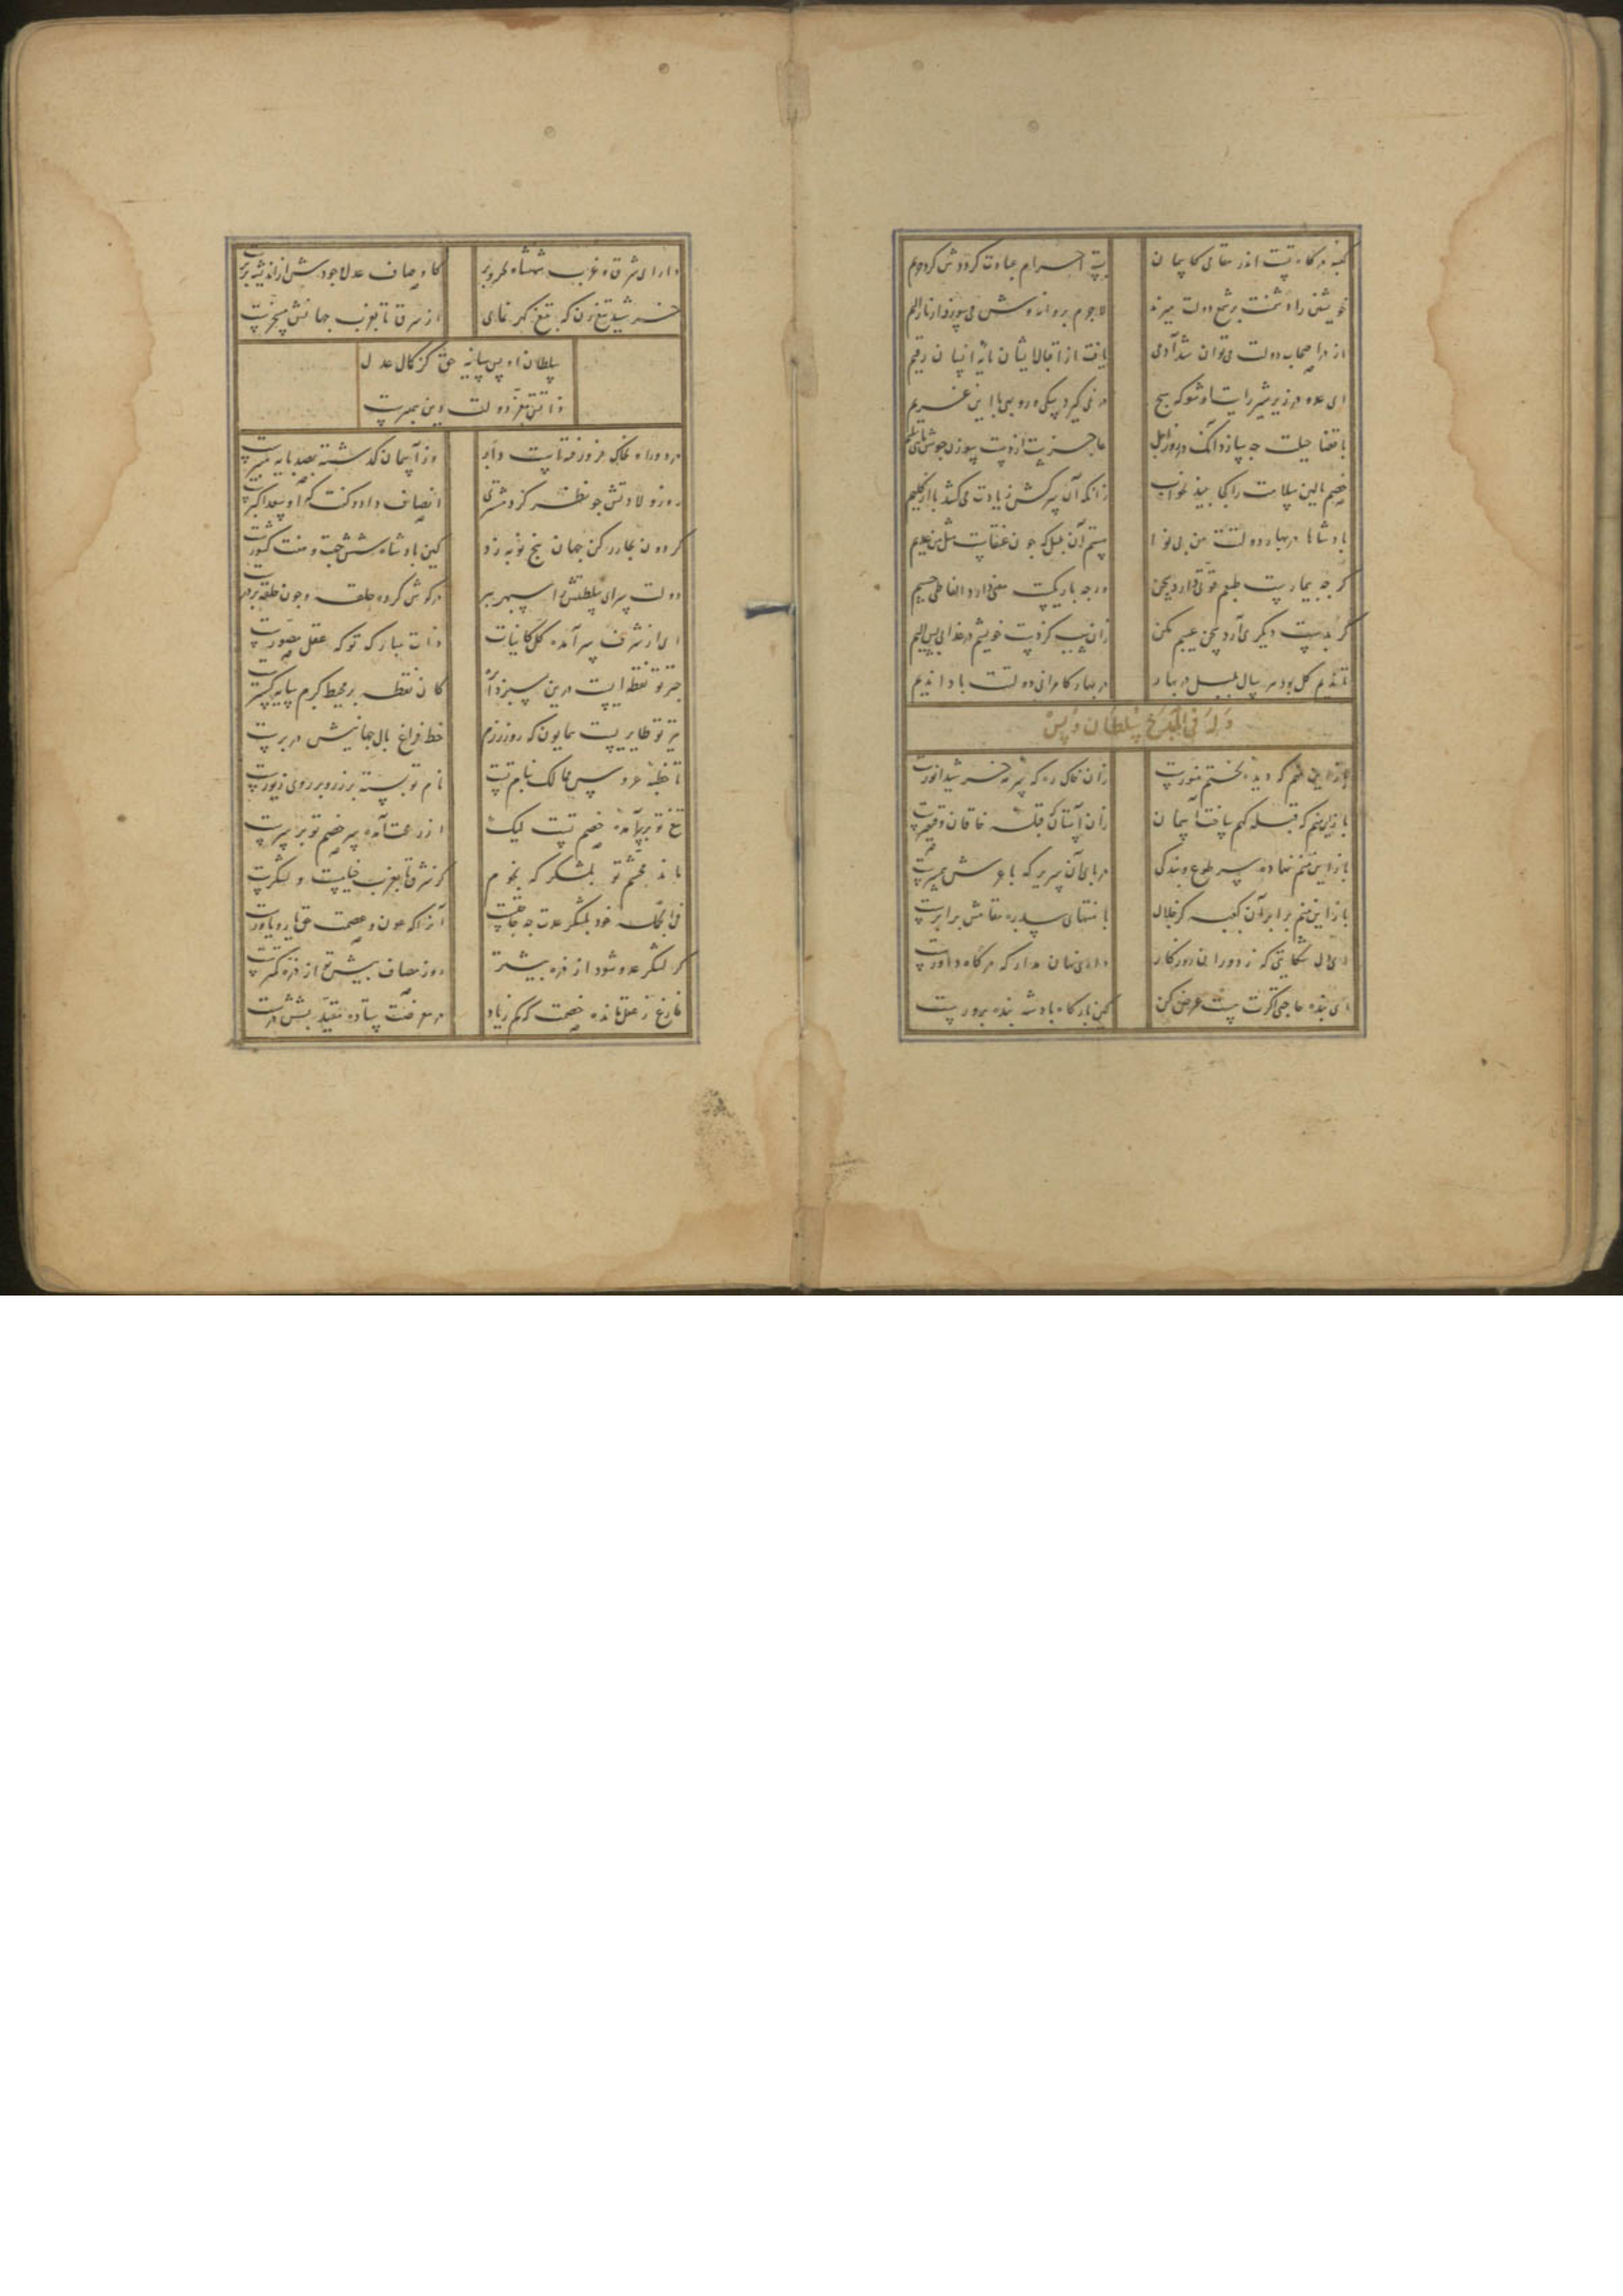 کعبهٔ درگاه تست اندر مقامی کاسمان بست احرام عبادت کرد وش کرد حریم
خویشتن را دشمنت بر شمع دولت میزند لاجرم پروانه وش می‌سوزد از نار الیم
از در اصحاب دولت می‌توان شد آدمی یافت از اقبال ایشان پایهٔ انسان رقیم
ای عدو در زیر شیر رایت او شو که هیچ در نمی‌گیرد سگی و روبهی با این غریم
با قضا حیلت چه سازد آنک در روز اجل عاجزست از دست سوزن جوشنهای
خصم بالین سلامت را کجا بیند بخواب زانکه آن سرکش زیادت می‌کشد پا از گلیم
پادشاها در بهار دولتت من بی نوا هستم آن بلبل که چون عنقاست مثل من عدیم
گرچه بیمارست طبعم قوتی دارد سخن ورچه باریکست معنی دارد الفاظی جسیم
گر بدستت دیگری آرد سخن عیبم مکن زان سبب کز دست خویشم در عذابی بس الیم
تا ندیم گل بود هر سال بلبل در بهار در بهار کامرانی دولتت بادا ندیم
وله فی المدح سلطان اویس
باز این منم که دیدهٔ بختم منورست زان خاک ره که سرمهٔ خورشید انورست
باز این منم که قبله گهم ساخت آسمان زان آستان که قبلهٔ خاقان و قیصرست
باز این منم نهاده سر طوع و بندگی در پای آن سریر که با عرش همسرست
باز این منم برابر آن کعبه کز جلال با منتهای سدره مقامش برابرست
ای دل شکایتی که ز دوران روزگار داری نهان مدار که درگاه داورست
ای بنده حاجتی اگرت هست عرض کن کین بارگاه پادشه بنده پرورست
دارای شرق و غرب شهنشاه بحر و بر کاوصاف عدل و جودش از اندیشه برترست
خورشید تیغ زن که به تیغ گهر نمای از شرق تا بغرب جهانش مسخرست
سلطان اویس سایهٔ حق کز کمال عدل
ذاتش معز دولت و دین پیمبرست
در دور او بخاک فرو رفته است وز آسمان گذشته بصد پایه منبرست
روز ولادتش چو نظر کرد مشتری انصاف داد و گفت که او سعد اکبرست
گردون بچار رکن جهان پنج نوبه زد کین پادشاه شش جهت و هفت کشورست
دولت سرای سلطنتش را سپهر پیر در گوش کرده حلقه و چون حلقه بر درست
ای از شرف سرآمدهٔ کل کاینات ذات مبارک تو که عقل مصورست
چتر تو نقطه ایست درین سبز دایره کان نقطه بر محیط کرم سایه گسترست
تیر تو طایریست همایون که روز رزم خط فراغ بال جهانیش در پرست
تا خطبهٔ عروس ممالک بنام تست نام تو بسته بر زر و بر روی زیورست
تیغ تو بر سر آمدهٔ خصم تست لیک از رعب آمده سر خصم تو بر سرست
ماند حشم تو بلشکر که نجوم کز شرق تا بغرب خیلست و لشکرست
فی الجمله خود بلشکر و عدت چه حاجتست آنرا که عون و عصمت حق یار و یاورست
گر لشکر عدو شود از ذره بیشتر روز مصاف پیش تو از ذره کمترست
فارغ ز عقل مانده خصمت که کم زیاد در معرضت پیاده مقید بششدرست